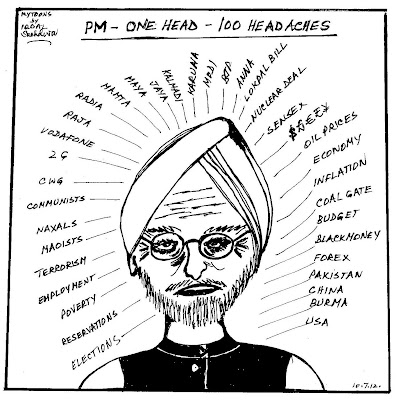 MYTOONS
BY
IQBAL
PM - ONE HEAD - 100 HEADACHES
ELECTIONS
RESERVATIONS
POVERTY
EMPLOYMENT
TERRORISM
MAOISTS
NAXALS
COMMUNISTS
CWG
2G
VODAFONE
RAJA
RADIA
MAMTA
MAYA
JAYA
KALMADI
KARUNA
MODI
BJP
ANNA
LOKPAL BILL
NUCLEAR DEAL
SENSEX
OIL PRICES
ECONOMY
INFLATION
COALGATE
BUDGET
BLACKMONEY
FOREX
PAKISTAN
CHINA
BURMA
USA
10.7.12.